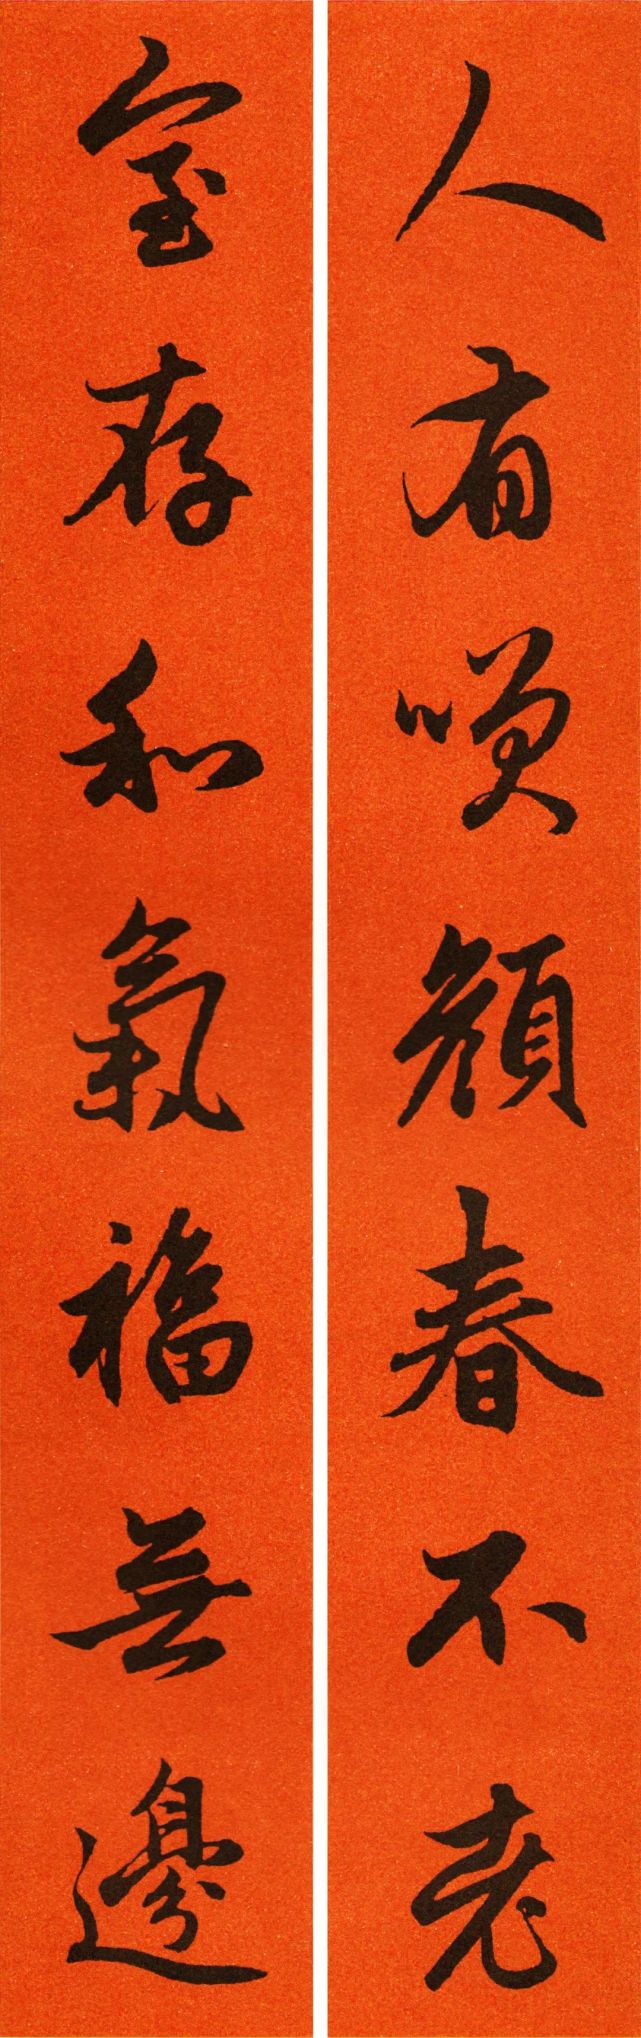 人有咲顏春不老
室存和氣福無邊